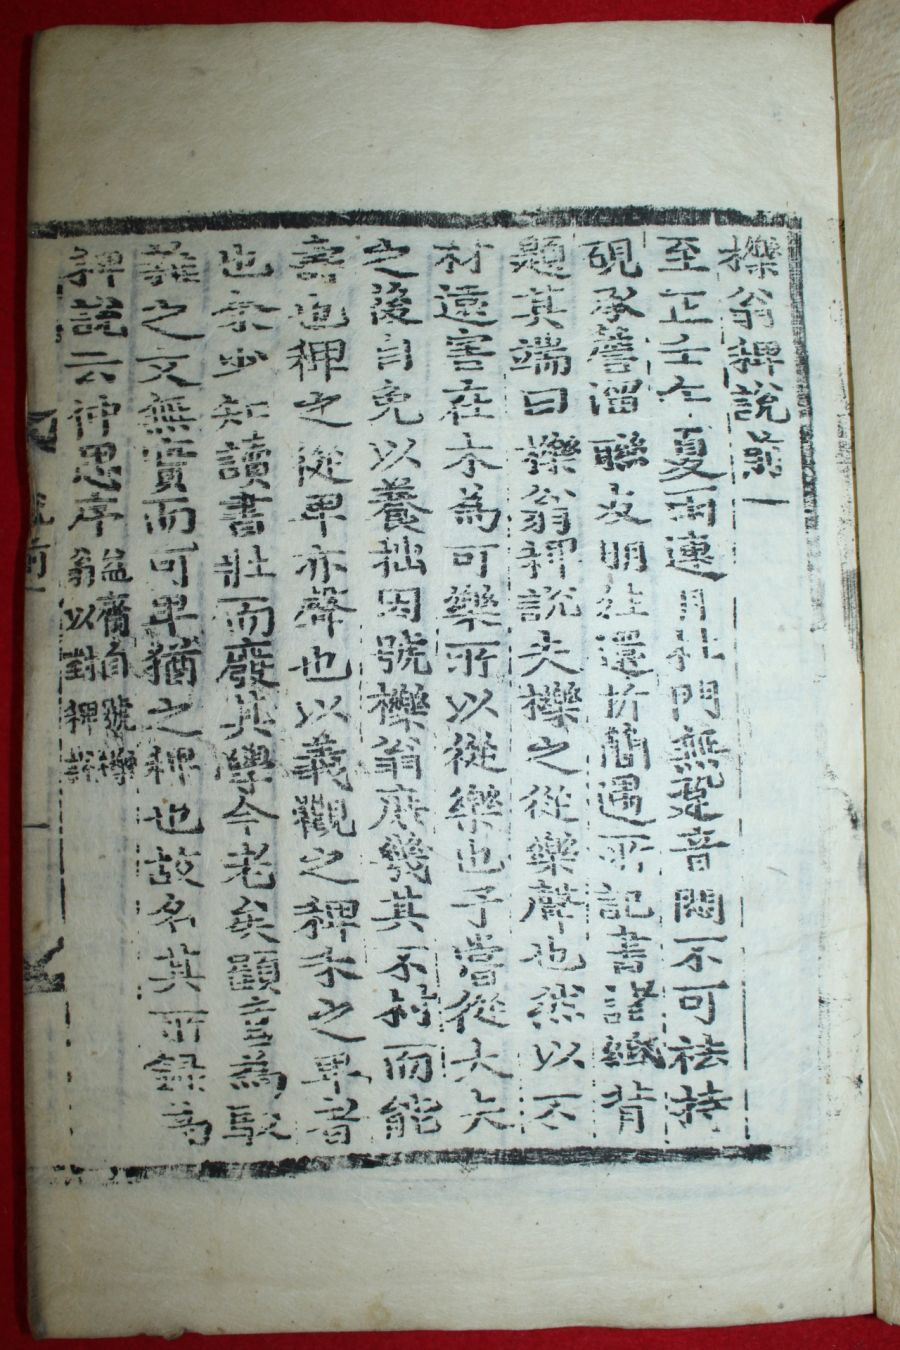 櫟翁稗說前一
至正壬午夏雨連月杜門無跫音悶不可袪持
硯承簷溜聯友朋往還折簡遇所記書諸紙背
題其端曰櫟翁稗說夫櫟之從樂聲也然以不
材遠害在木為可樂所以從樂也予嘗從大夫
之後自免以養拙因號櫟翁庶幾其不材而能
壽也稗之從卑亦聲也以義觀之稗禾之卑者
也余少知讀書壯而廢其學今老矣顧喜為駁
雜之文無實而可卑猶之稗也故名其所錄為
稗說云仲思序益齋自號櫟
翁以對稗說